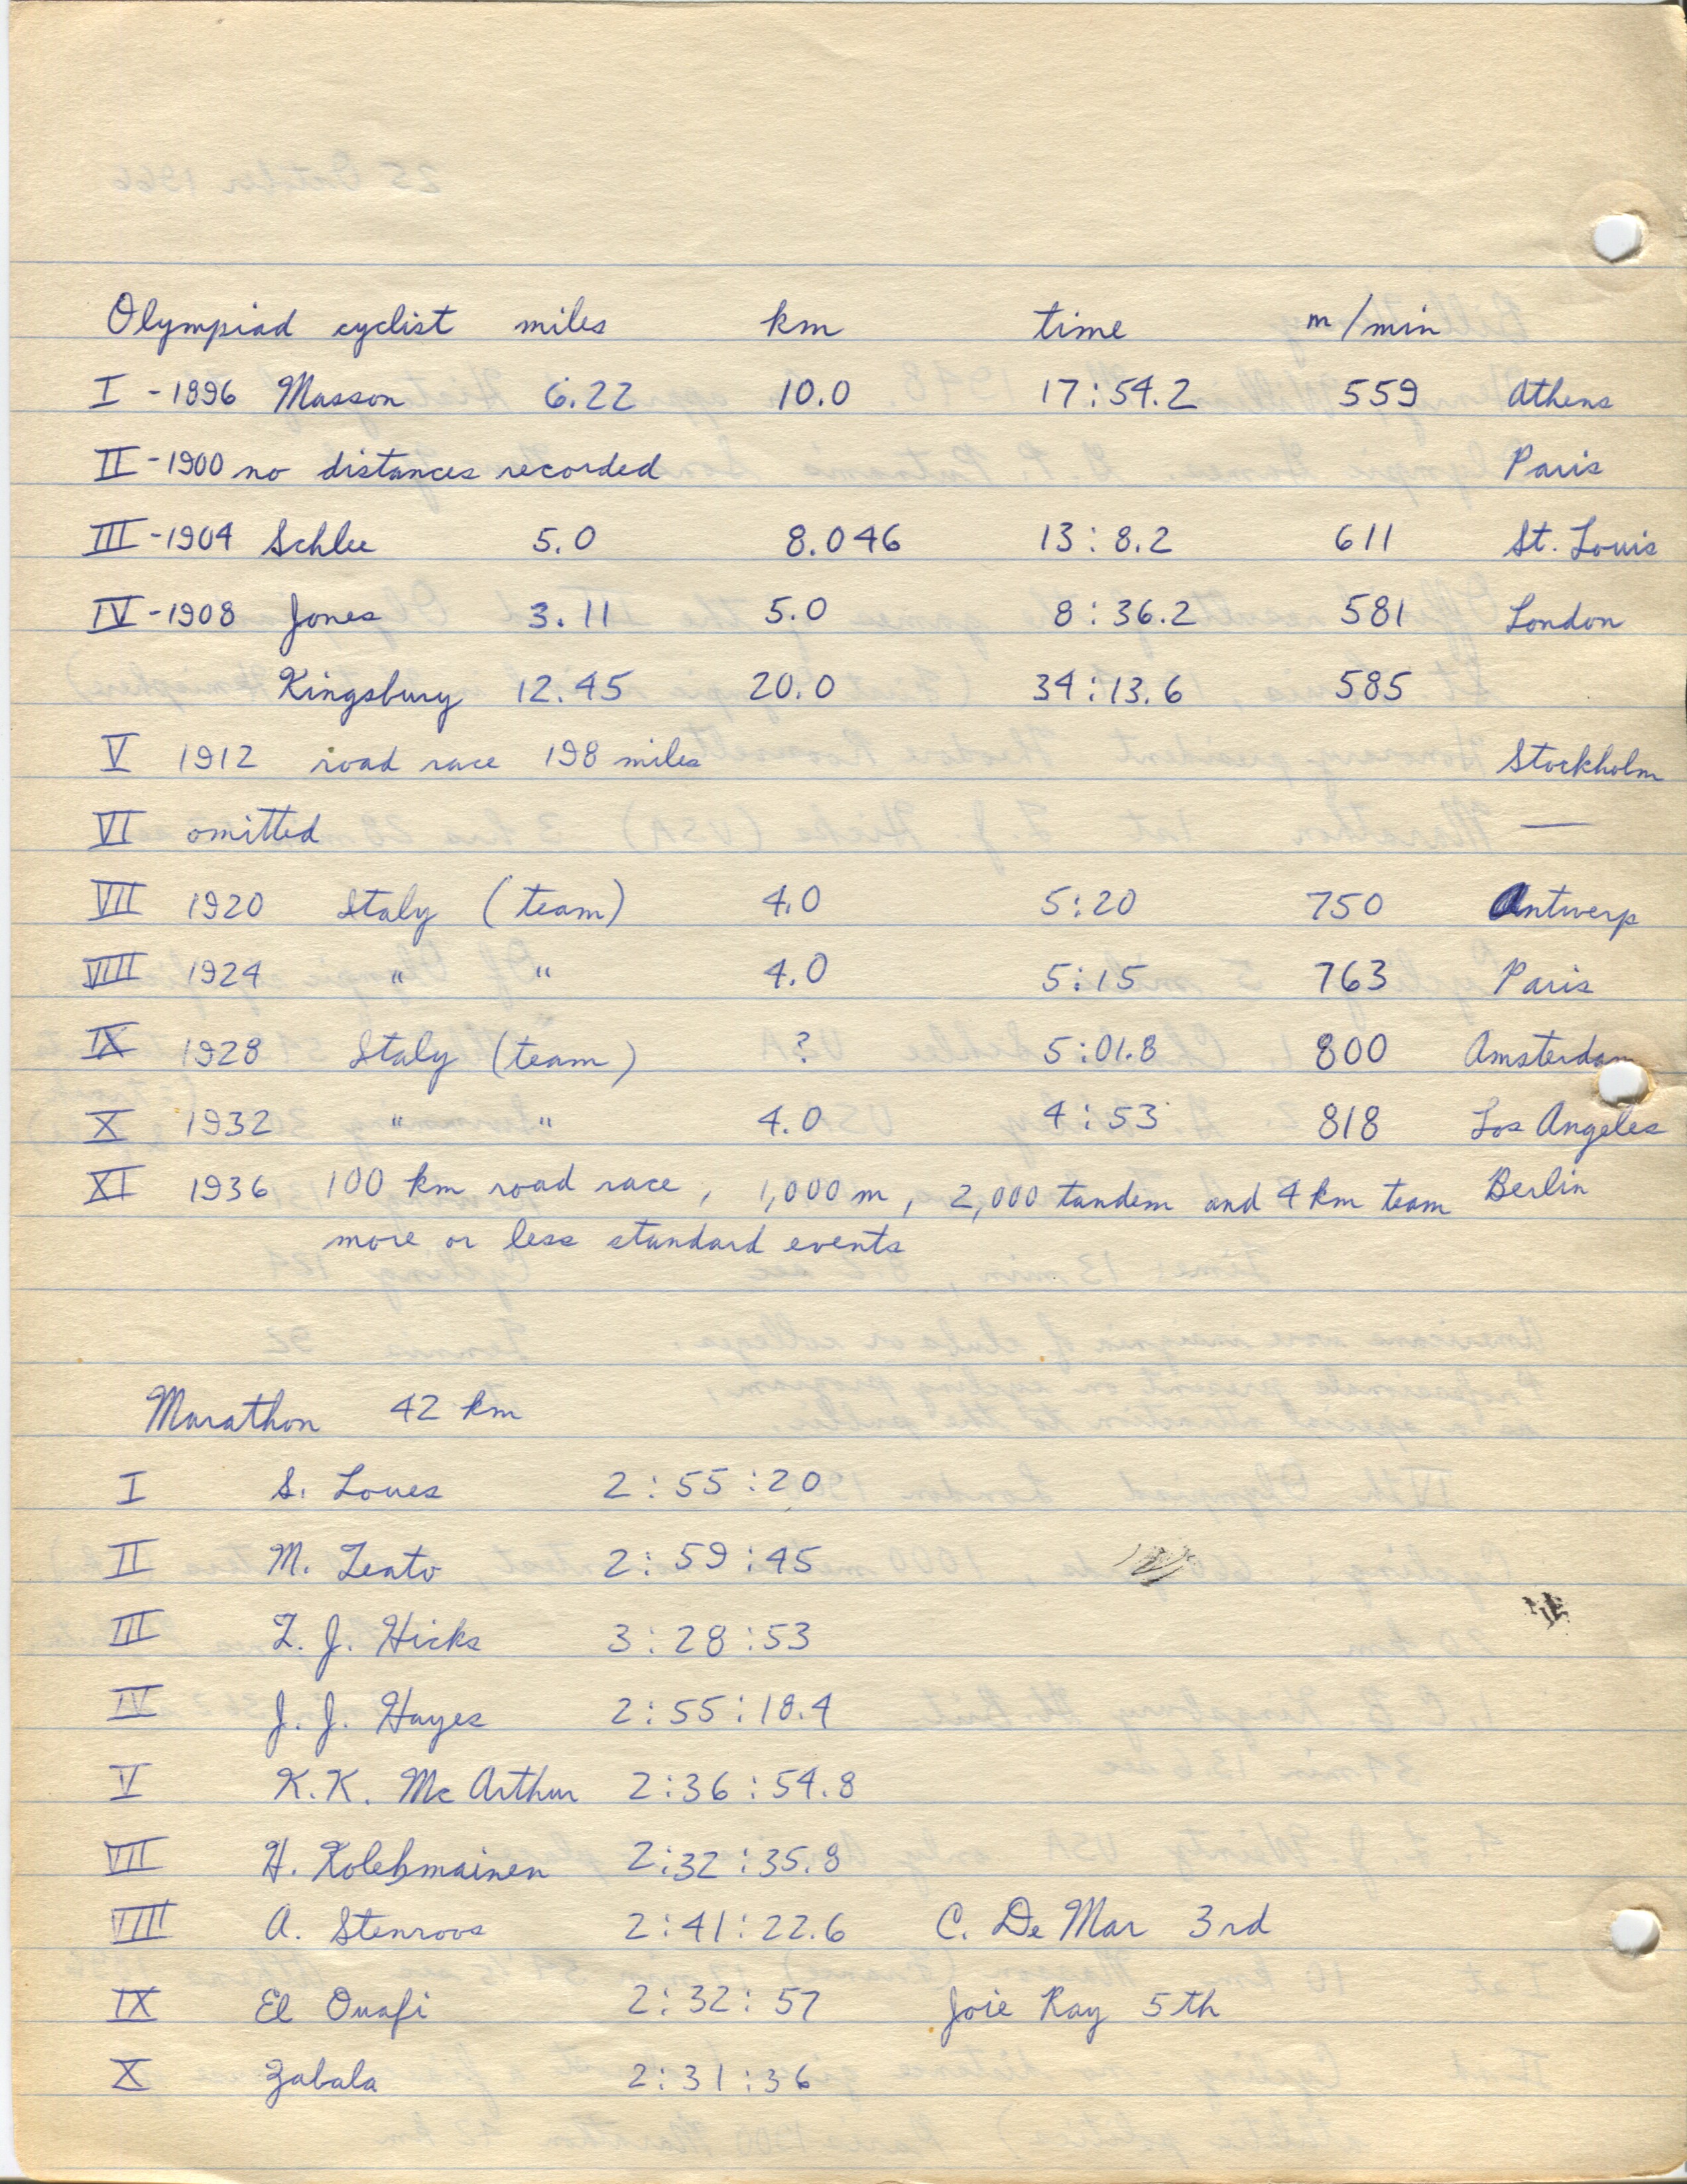 Olympiad cyclist miles km time m/min
I - 1896 Masson 6.22 10.0 17:54.2 559 Athens
II - 1900 no distances recorded Paris
III - 1904 Schlee 5.0 8.046 13:8.2 611 St. Louis
IV - 1908 Jones 3.11 5.0 8:36.2 581 London
Kingsbury 12.45 20.0 34:13.6 585
V 1912 road race 198 miles Stockholm
VI omitted —
VII 1920 Italy (team) 4.0 5:20 750 Antwerp
VIII 1924 " " 4.0 5:15 763 Paris
IX 1928 Italy (team) ? 5:01.8 800 Amsterdam
X 1932 " " 4.0 4:53 818 Los Angeles
XI 1936 100 km road race, 1,000 m, 2,000 tandem and 4 km team Berlin
more or less standard events
Marathon 42 km
I S. Loues 2:55:20
II M. Teato 2:59:45
III T. J. Hicks 3:28:53
IV J. J. Hayes 2:55:18.4
V K.K. McArthur 2:36:54.8
VII H. Kolehmainen 2:32:35.8
VIII A. Stenroos 2:41:22.6 C. DeMar 3rd
IX El Ouafi 2:32:57 Joie Ray 5th
X Zabala 2:31:36